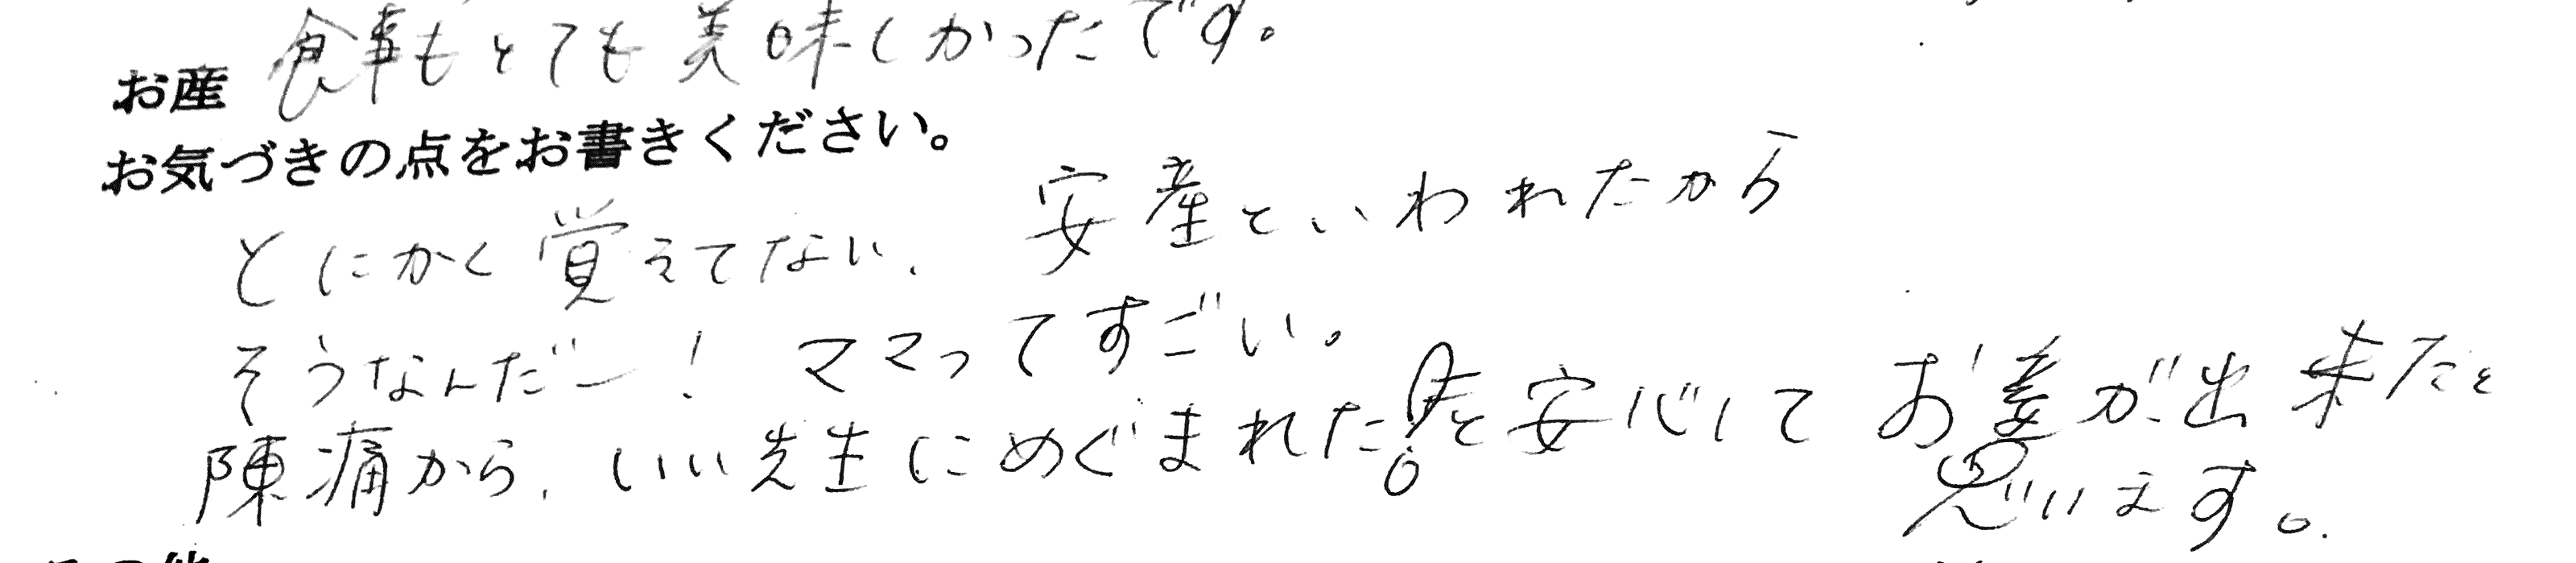 食事もとても美味しかったです。
お産
お気づきの点をお書きください。
とにかく覚えてない、安産といわれたから
そうなんだー! ママってすごい。
陣痛から、いい先生にめぐまれた!と安心してお産が出来たと
思います。